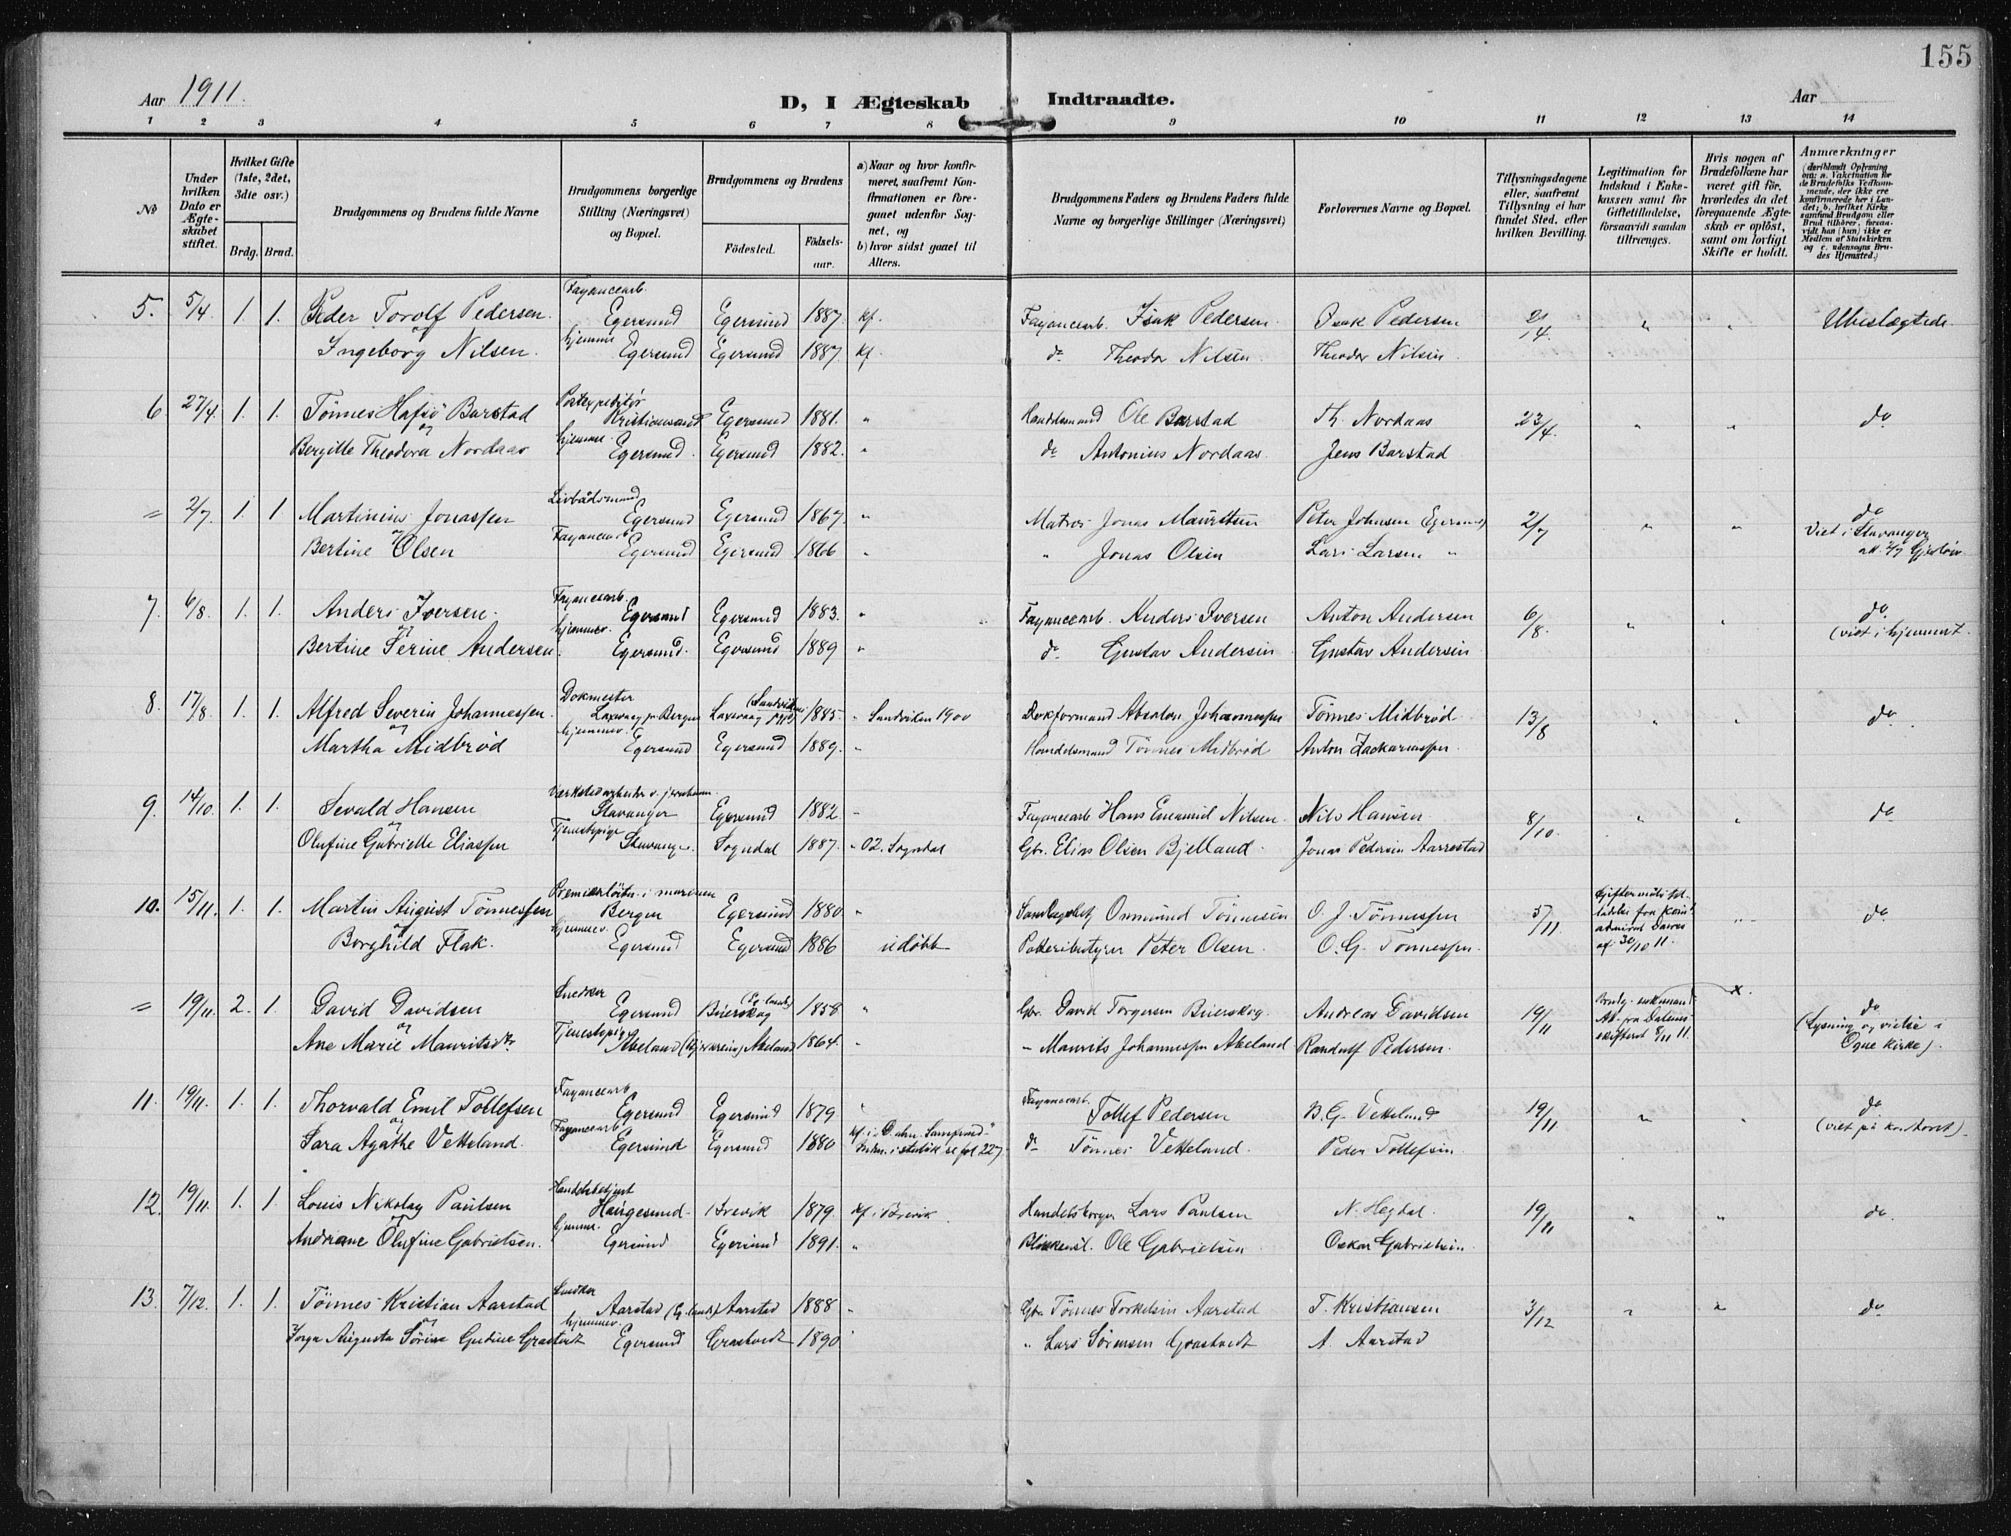 155
Aar 1911.
D, I Ægteskab Indtraadte.
Aar
1 2 3 4 5 6 7 8 9 10 11 12 13 14
№
Under hvilken Dato er Ægteskabet stiftet.
Hvilket Gifte (1ste, 2det, 3die osv.)
Brdg. Brud.
Brudgommens og Brudens fulde Navne
Brudgommens borgerlige Stilling (Næringsvei) og Bopæl.
Brudgommens og Brudens
Fødested.
Fødselsaar.
a) Naar og hvor konfirmeret, saafremt Konfirmationen er foregaaet udenfor Sognet, og
b) hvor sidst gaaet til Alters.
Brudgommens Faders og Brudens Faders fulde Navne og borgerlige Stillinger (Næringsvei)
Forlovernes Navne og Bopæl.
Tillysningsdagene eller, saafremt Tillysning ei har fundet Sted, efter hvilken Bevilling.
Legitimation for Indskud i Enkekassen samt for Giftetilladelse, forsaavidt saadan tiltrænges.
Hvis nogen af Brudefolkene har været gift før, hvorledes da det foregaaende Ægteskab er opløst, samt om lovligt Skifte er holdt.
Anmærkninger (deriblandt Oplysning om: a. Vakcination for de Brudefolks Vedkommende, der ikke ere konfirmerede her i Landet; b. hvilket Kirkesamfund Brudgom eller Brud tilhører, forsaavidt han (hun) ikke er Medlem af Statskirken og c. udensogns Brudes Hjemsted.)
5. 5/4 1. 1. Peder Torolf Pedersen. Fayancearb. Egersund Egersund 1887. kf. Fayancearb. Isak Pedersen Isak Pedersen 2/4 " " Ubeslægtede
Ingeborg Nilsen. hjemme Egersund Egersund 1887. kf do Theodor Nilsen Theodor Nilsen
6 27/4 1. 1. Tönnes Hafsö Barstad Postexpeditör Kristiansand Egersund 1881. " Handelsmand Ole Barstad Th. Nordaas 23/4. " " do
og
Bergitte Theodora Nordaas hjemme. Egersund. Egersund 1882. " do Antonius Nordaas. Jens Barstad
= 2/7 1. 1. Martinius Jonassen Livbådsmand Egersund Egersund 1867. " Matros Jonas Mauritsen Peter Johnsen Egersund 2/7 " " do
og
Bertine Olsen Fayancearb. Egersund Egersund 1866 " " Jonas Olsen Lars Larsen " Viet i Stavanger
7. 6/8. 1. 1. Anders Iversen. Fayancearb. Egersund Egersund 1883. " Fayancearb. Anders Iversen Anton Andersen 6/8. " " do
og
Bertine Serine Andersen hjemmev. Egersund. Egersund 1889 " do Gustav Andersen Gustav Andersen (viet i hjemmet.
8. 17/8. 1. 1. Alfred Severin Johannessen. Dokmester Laxevaag pr Bergen Laxevaag 1885. " Sandviken 1900 Dokformand Absalon Johannessen Tönnes Midbröd 13/8 " " do
og
Martha Midbröd hjemmev. Egersund Egersund 1889. " Handelsmand Tönnes Midbröd Anton Zackariassen.
9. 14/10. 1. 1. Sevald Hansen Værkstedarbeider v. jernbanen. Stavanger Egersund 1882. " Fayancearb Hans Enevald Nilsen. Nils Hansen 8/10. " " do
og
Olufine Gabrielle Eliassen Tjenestepige Stavanger. Sogndal 1887. " 02. Sogndal Gbr. Elias Olsen Bjelland. Jonas Pedersen Aarrestad
10. 15/11. 1. 1. Martin August Tönnessen Premierløitn. i marinen Bergen Egersund 1880. " Osmund Tönnesen O. J. Tönnessen 5/11 af 30/10 11. " do
og
Borghild Flak. hjemmev. Egersund Egersund 1886 udöbt Potteribestyrer Peter Olsen O. G. Tönnessen.
= 19/11. 2. 1. David Davidsen Snedker Egersund Bierskog 1858. " Gbr. David Torgersen Bierskog. Andreas Davidsen 19/11 x. do
og
Ane Marie Mauritsdtr Tjenestepige Akeland (Bjerkreim) Akeland 1864. " " Maurits Johannessen Akeland Randulf Pedersen. (Lysning og vielse i Ogne kirke).
11. 19/11. 1. 1. Thorvald Emil Tollefsen Fayancearb Egersund Egersund 1879 " Fayancearb. Tollef Pedersen B. G. Vetteland 19/11 " " do
og
Sara Agathe Vetteland. Fayancearb Egersund Egersund 1880 do Tönnes Vetteland. Peder Tollefsen (viet på kontoret).
12. 19/11. 1. 1. Louis Nikolay Paulsen Handelsbetjent Haugesund. Brevik 1879. kf. i Brevik. Handelsborger Lars Paulsen N. Hegdal. 19/11 " " do
og
Andriane Olufine Gabrielsen. hjemme. Egersund Egersund 1891. " Blikkensl. Ole Gabrielsen Oskar Gabrielsen.
13. 7/12. 1. 1. Tönnes Kristian Aarstad Snedker Aarstad (Eg. land) Aarstad 1888 " Gbr. Tönnes Torkelsen Aarstad T. Kristiansen 3/12 " " do
og
Augusta Sörine Gurine Grastvedt hjemmev. Egersund Grastvedt 1890 " " Lars Sörensen Grastvedt A. Aarstad